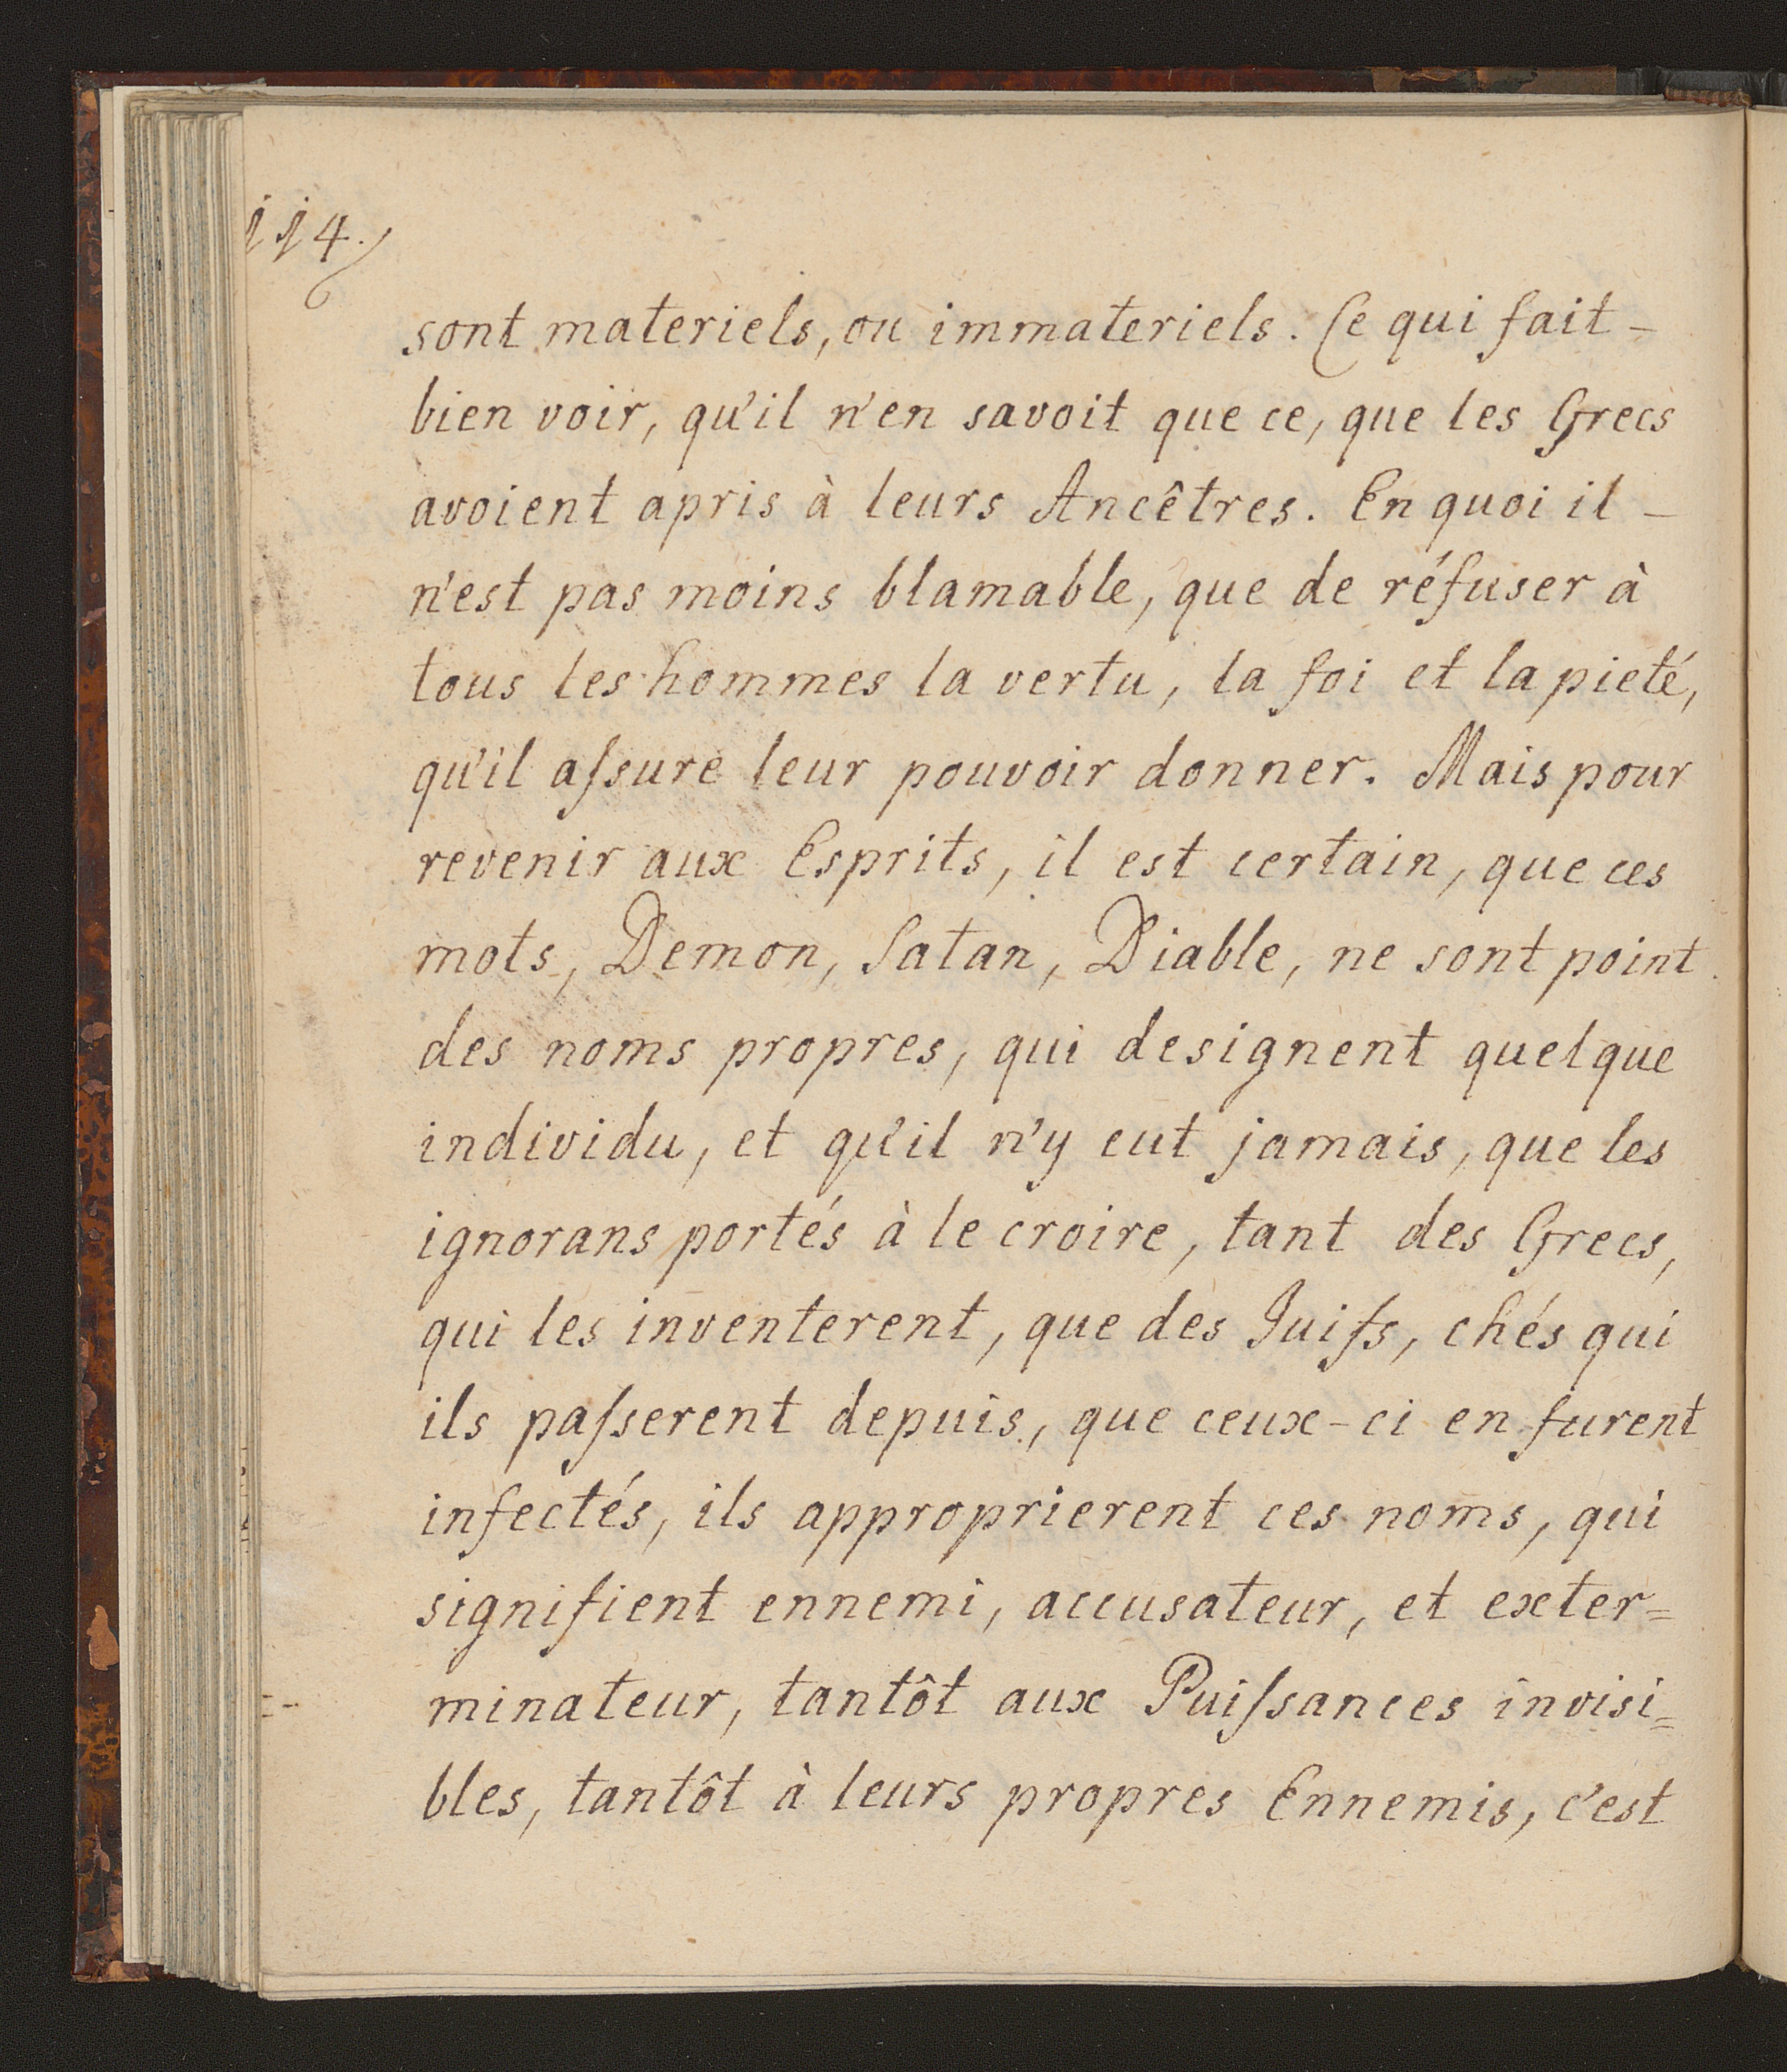 114.
sont materiels, ou immateriels. Ce qui fait -
bien voir, qu'il n'en savoit que ce, que les Grecs
avoient apris à leurs Ancêtres. En quoi il -
n'est pas moins blamable, que de réfuser à
tous les hommes la vertu, la foi et la pieté,
qu'il aſsure leur pouvoir donner. Mais pour
revenir aux Esprits, il est certain, que ces
mots, Demon, Satan, Diable, ne sont point
des noms propres, qui designent quelque
individu, et qu'il n'y eut jamais, que les
ignorans portés à le croire, tant des Grecs,
qui les inventerent, que des Juifs, chés qui
ils paſserent depuis, que ceux-ci en furent
infectés, ils approprierent ces noms, qui
signifient ennemi, accusateur, et exter=
minateur, tantôt aux Puiſsances invisi=
bles, tantôt à leurs propres Ennemis, c'est